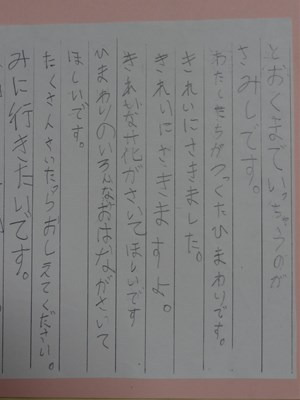 とおくまでいっちゃうのが
さみしです。
わたしたちがつくたひまわりです。
きれいにさきました。
きれいにさきますよ。
きれいな花がさいてほしいです
ひまわりのいろんなおはながさいて
ほしいです。
たくさんさいたらおしえてください。
みに行きたいです。